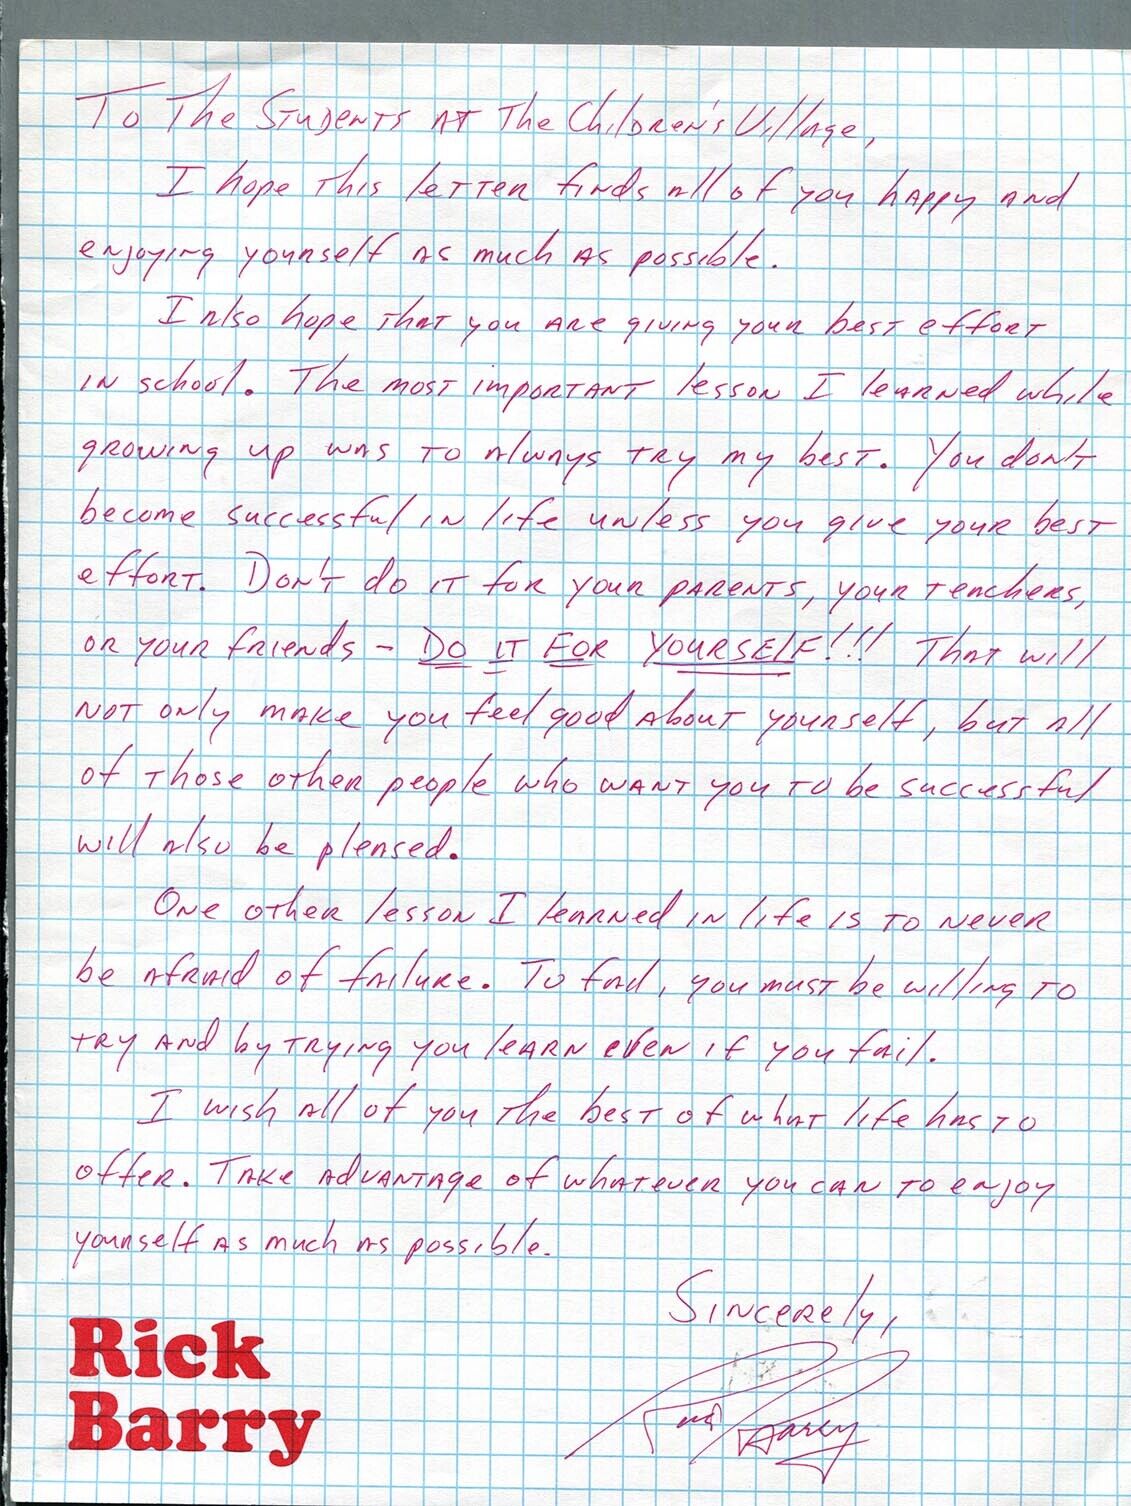 To The Students at The Children's Village,
I hope this letter finds all of you happy and
enjoying yourself as much as possible.
I also hope that you are giving your best effort
in school. The most important lesson I learned while
growing up was to always try my best. You don't
become successful in life unless you give your best
effort. Don't do it for your parents, your teachers,
or your friends - DO IT FOR YOURSELF!!! That will
not only make you feel good about yourself, but all
of those other people who want you to be successful
will also be pleased.
One other lesson I learned in life is to never
be afraid of failure. To fail, you must be willing to
try and by trying you learn even if you fail.
I wish all of you the best of what life has to
offer. Take advantage of whatever you can to enjoy
yourself as much as possible.
Sincerely,
Rick Barry
Rick
Barry